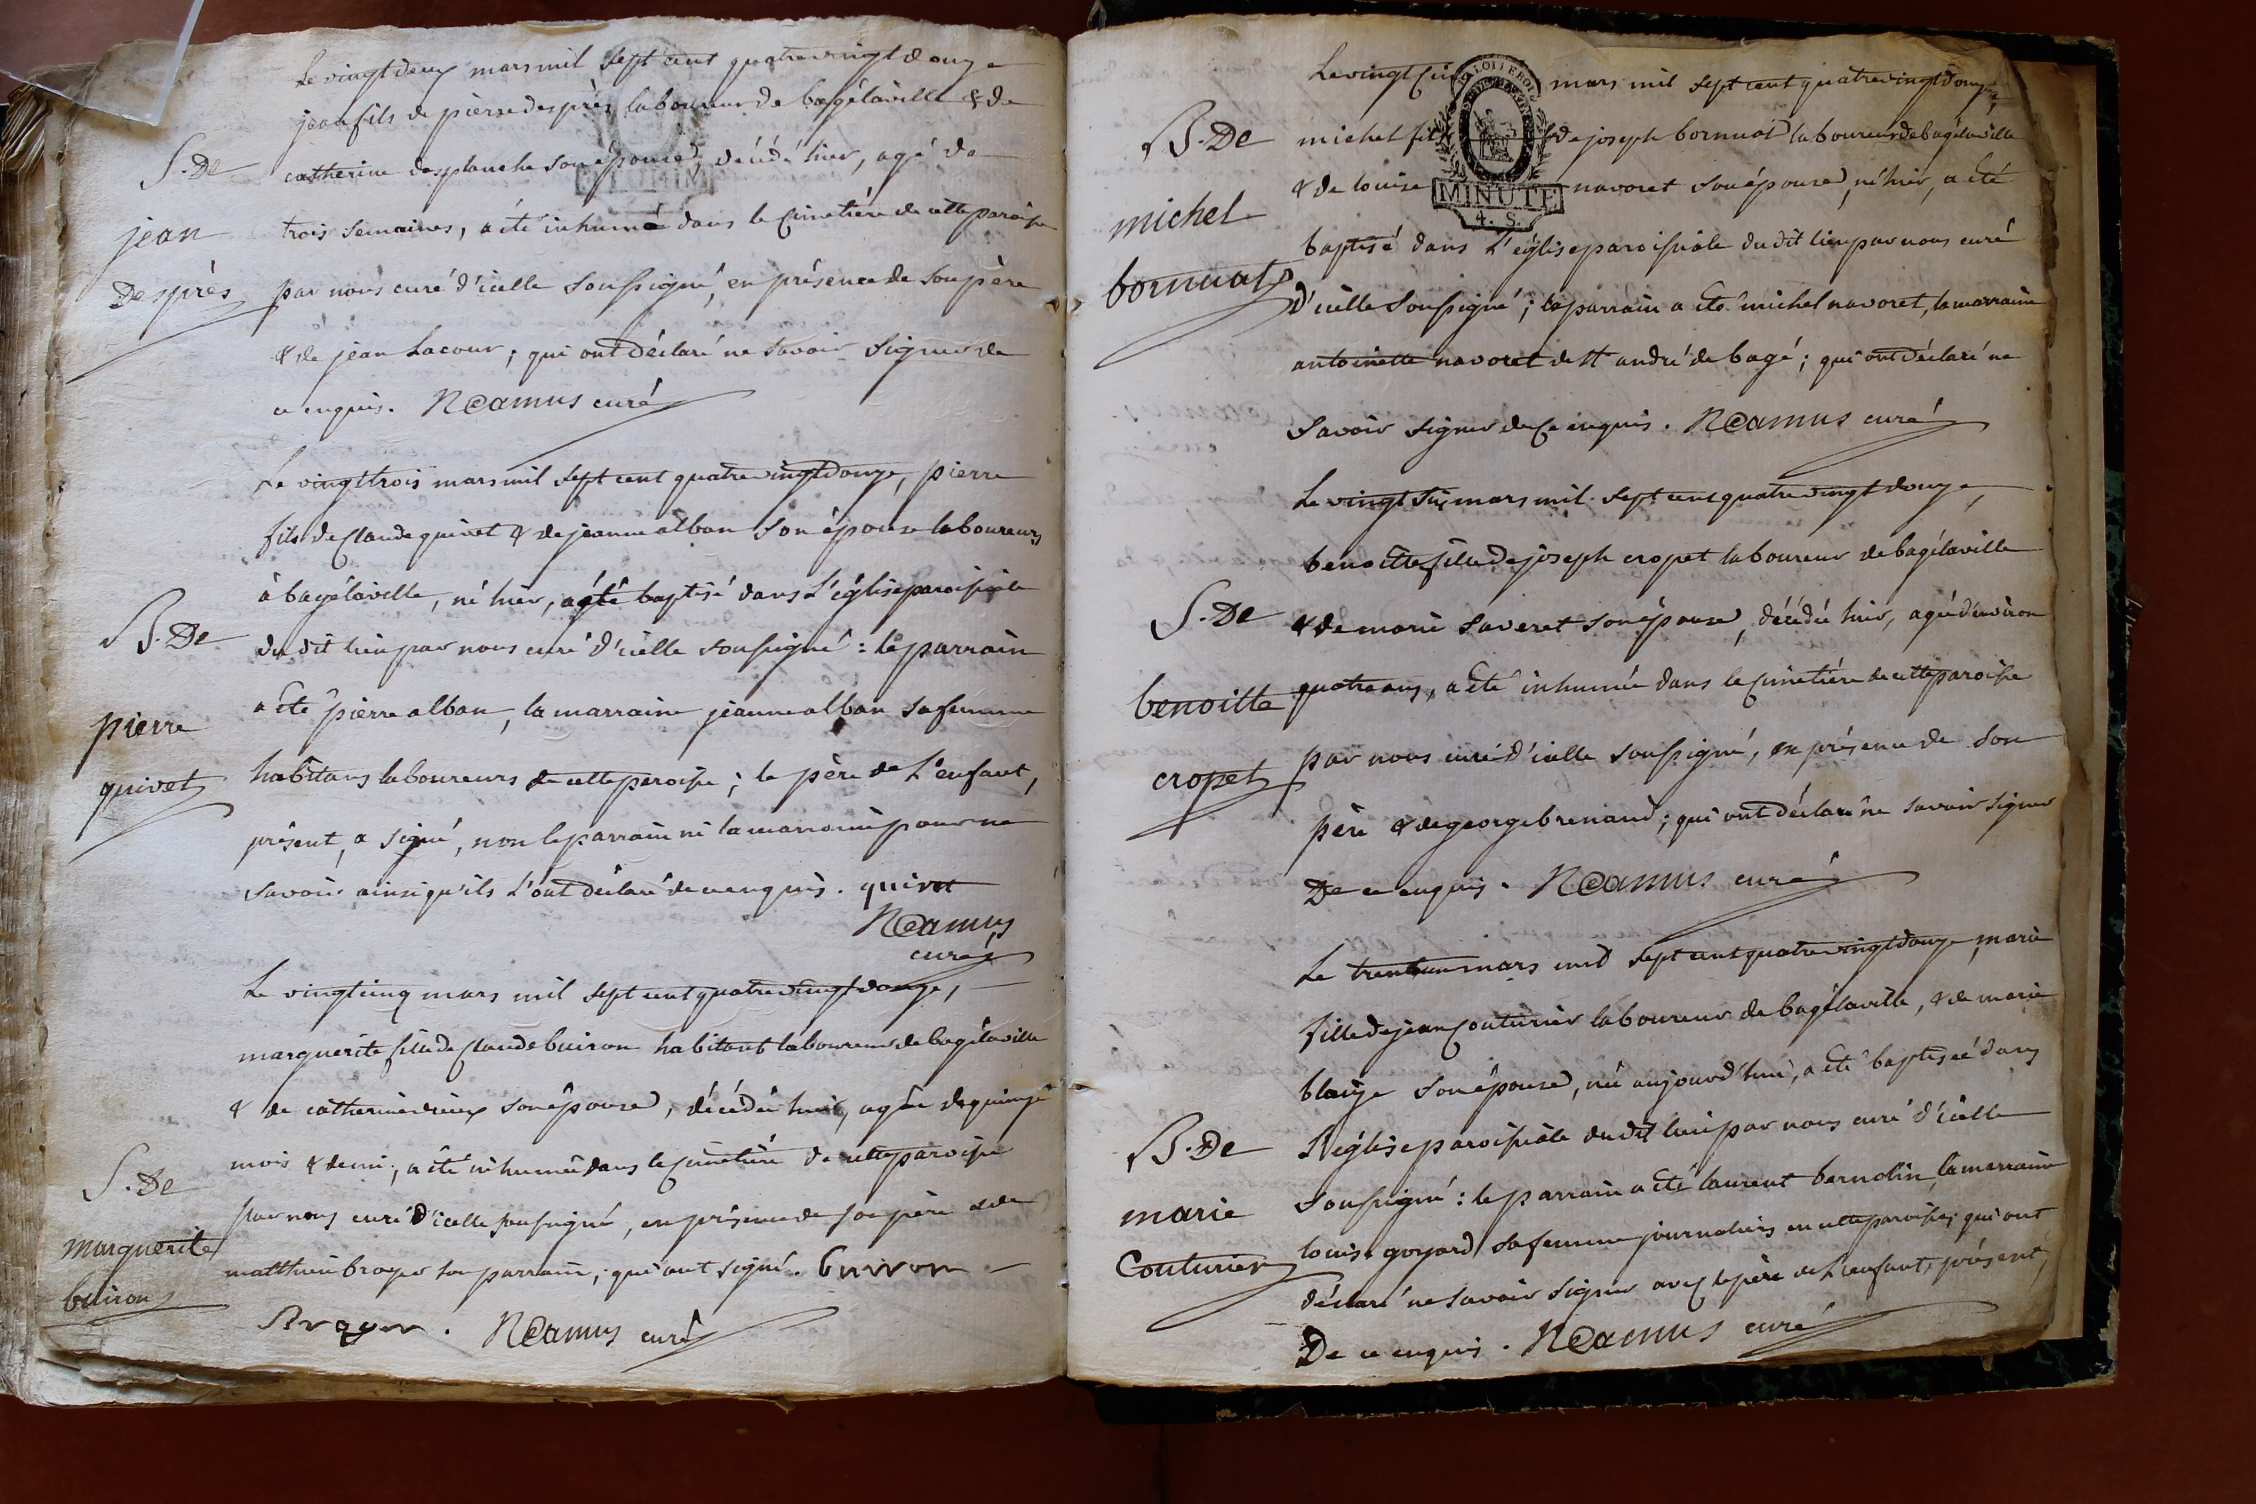 Le vingt deux mars mil sept cent quatre vingt douze
jean fils de pierre desprès laboureur de bagélaville & de
S. De
catherine desplanche son épouse, décédé hier, agé de
trois semaines, a été inhumé dans le cimetière de cette paroisse
jean
Desprès
par nous curé d'icelle soussigné, en présence de son père
& de jean Lacour; qui ont déclaré ne savoir signer de
ce enquis. NCamus curé
Le vingt trois mars mil sept cent quatre vingt douze, pierre
fils de Claude quivet & de jeanne alban son épouse laboureurs
à bagélaville, né hier, a été baptisé dans L'église paroissiale
B. De
du dit lieu par nous curé d'icelle soussigné: le parrain
a été pierre alban, la marraine jeanne alban sa femme
pierre
habitans laboureurs de cette paroisse; le père de L'enfant,
quivet
présent, a signé, non le parrain ni la marraine pour ne
savoir ainsi qu'ils L'ont déclaré de ce enquis. quivet
NCamus
curé
Le vingt cinq mars mil sept cent quatre vingt douze,
marguerite fille de Claude buiron habitant laboureur de bagélaville
& de catherine vieux son épouse, décédée hier, agée de quinze
mois & demi, a été inhumée dans le cimetière de cette paroisse
S. De
par nous curé d'icelle soussigné, en présence de son père & de
marguerite
buiron
matthieu broyer son parrain; qui ont signé. buiron
Broyer. NCamus curé
Le vingt mars mil sept cent quatre vingt douze,
B. De
michel fils de joseph bornuat laboureur de bagélaville
& de louise navoret son épouse, né hier, a été
LA LOI ET LE ROI
MINUTE
4. S.
michel
bornuat
baptisé dans L'église paroissiale du dit lieu par nous curé
d'icelle soussigné; le parrain a été michel navoret, la marraine
antoinette navoret de St andré de bagé; qui ont déclaré ne
savoir signer de ce enquis. NCamus curé
Le vingt six mars mil sept cent quatre vingt douze,
benoitte fille de joseph cropet laboureur de bagélaville
S. De
& de marie saveret son épouse, décédée hier, agée d'environ
benoitte
quatre ans, a été inhumée dans le cimetière de cette paroisse
cropet
par nous curé d'icelle soussigné, en présence de son
père & de george brenaud; qui ont déclaré ne savoir signer
De ce enquis. NCamus curé
Le trente un mars mil sept cent quatre vingt douze, marie
fille de jean Couturier laboureur de bagélaville, & de marie
blaize son épouse, née aujourd'hui, a été baptisée dans
B. De
L'église paroissiale du dit lieu par nous curé d'icelle
marie
soussigné: le parrain a été laurent bernolin, la marraine
Couturier
louise goyard sa femme journaliers en cette paroisse; qui ont
déclaré ne savoir signer avec le père de L'enfant, présent,
De ce enquis. NCamus curé